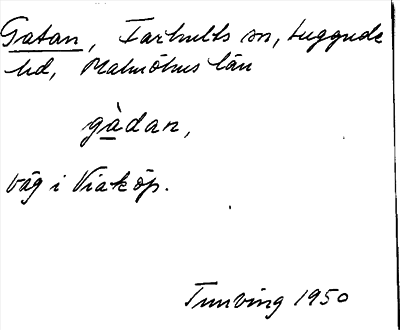 Gatan, Farhults sn, Luggude
hd, Malmöhus län
gàdan,
väg i Viaköp.
Tunving 1950